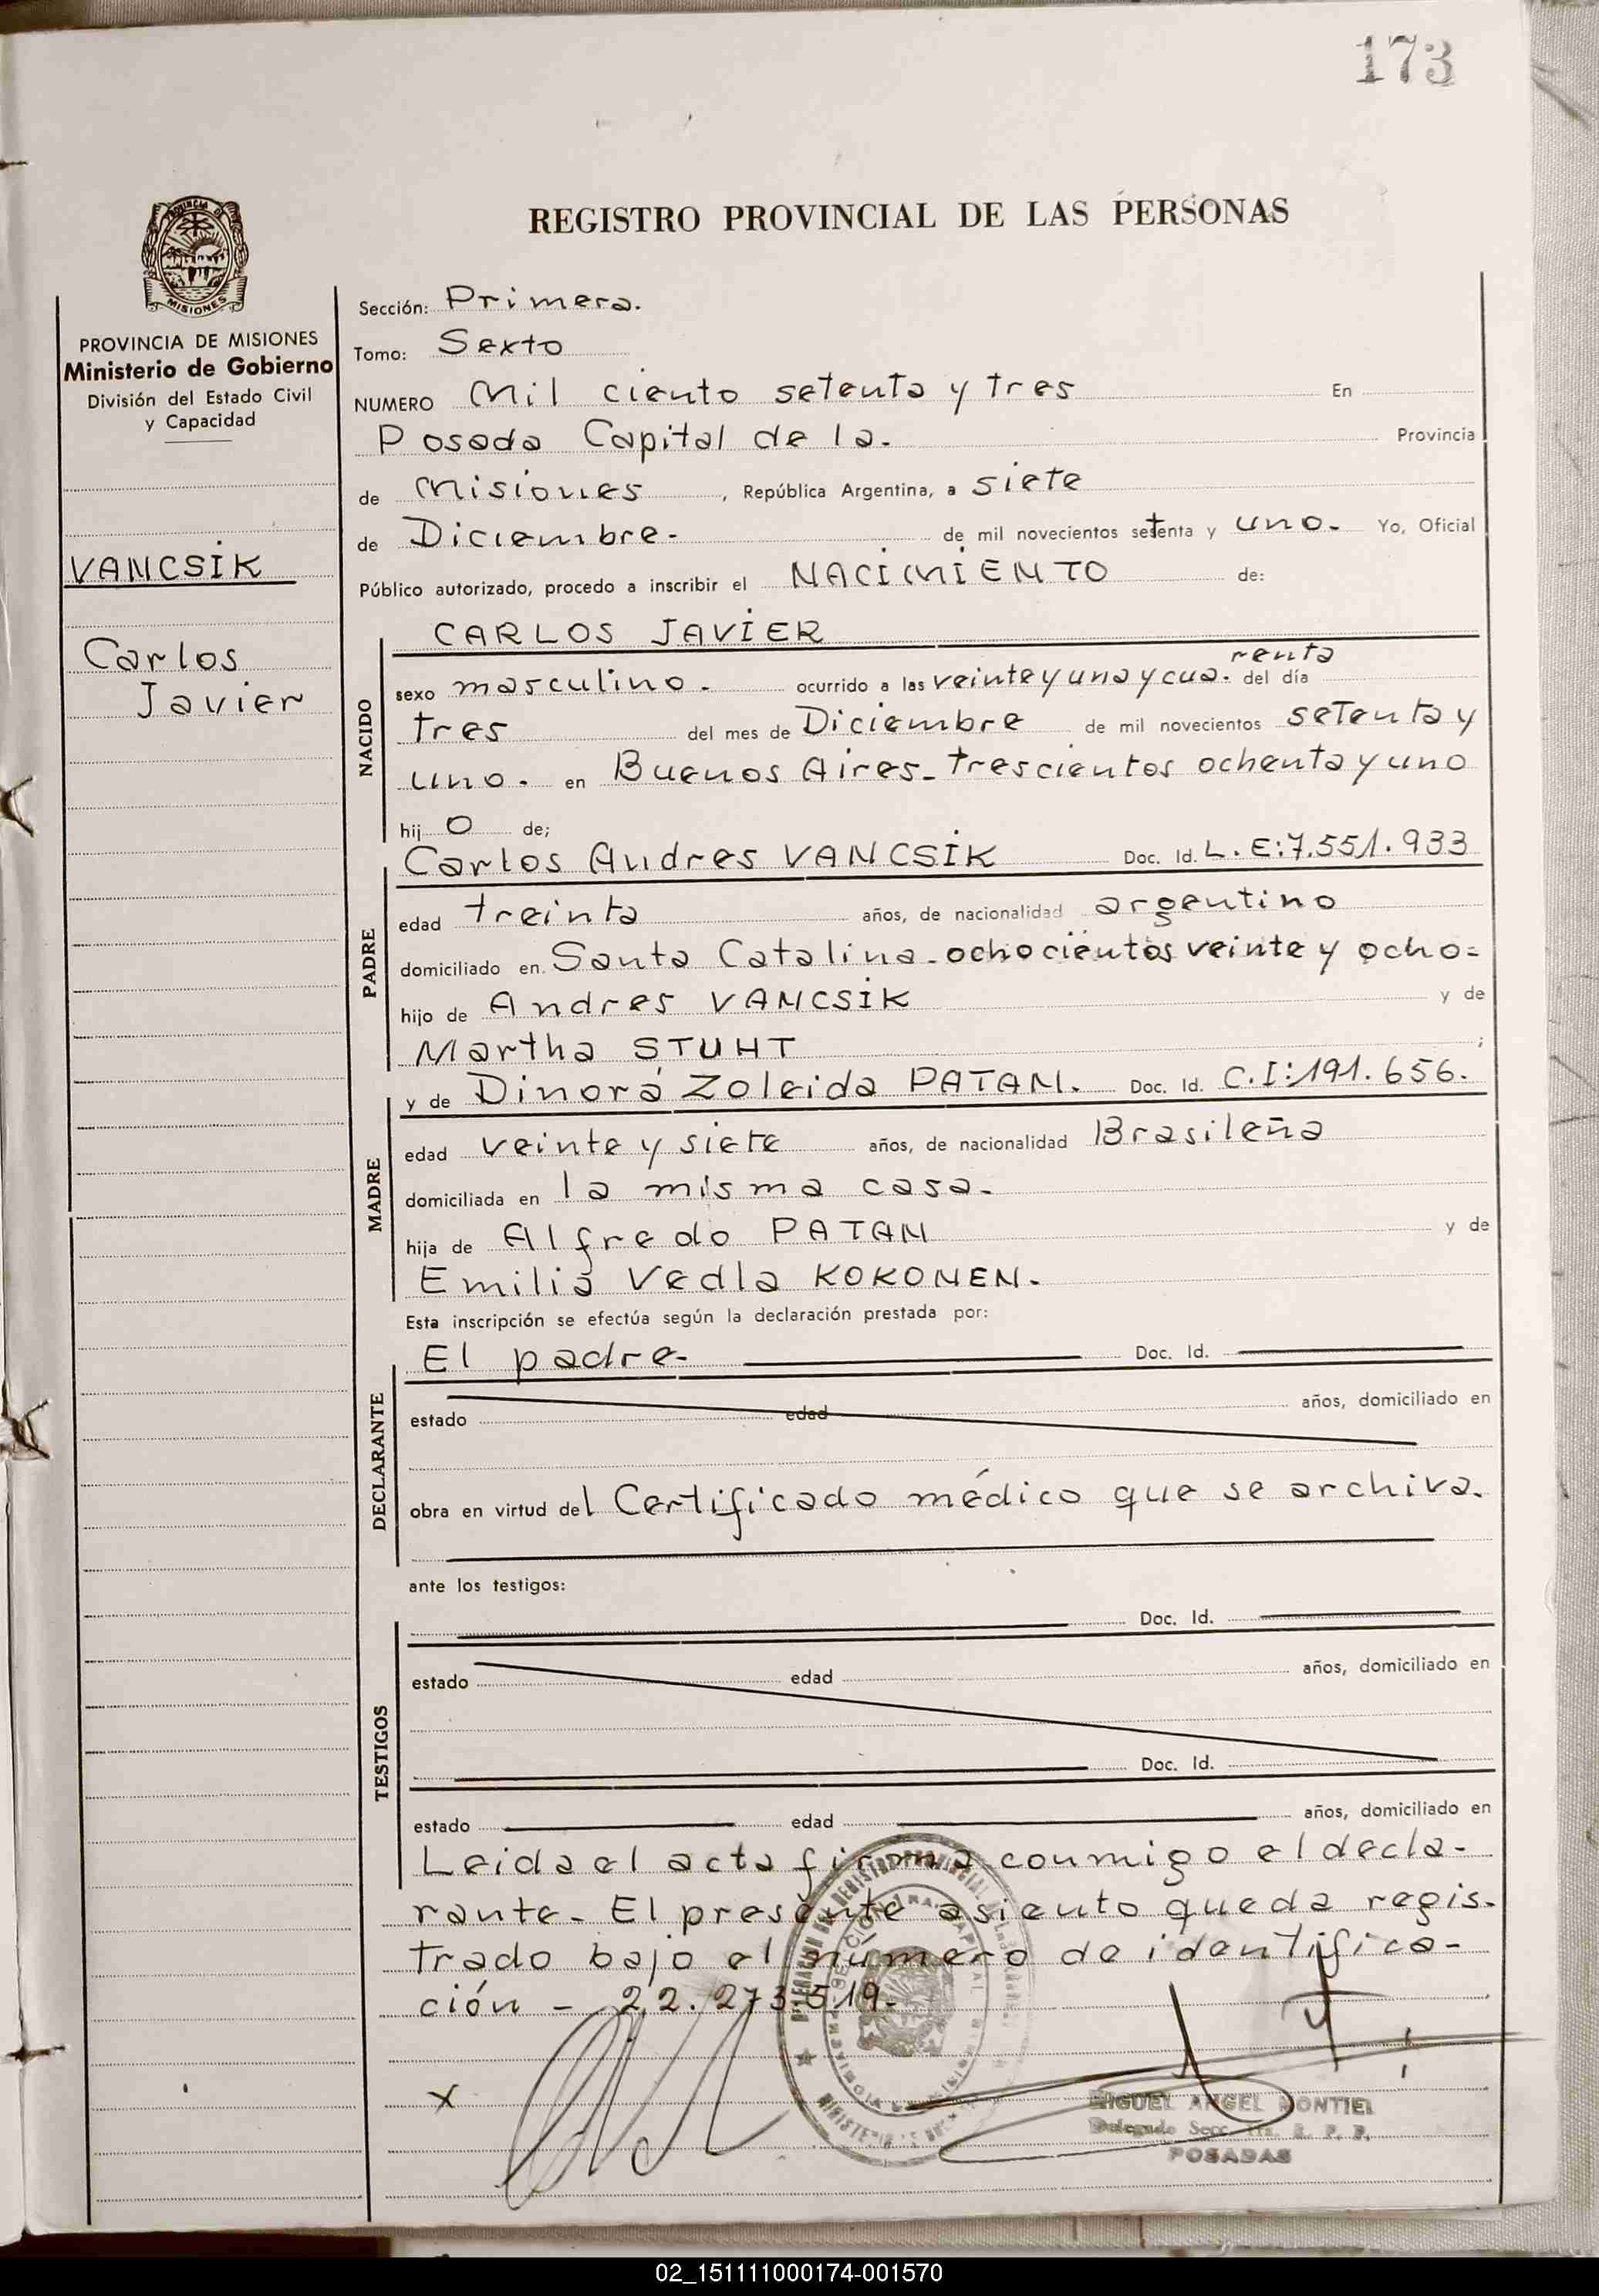 173
REGISTRO PROVINCIAL DE LAS PERSONAS
PROVINCIA DE MISIONES
Ministerio de Gobierno
División del Estado Civil
y Capacidad
VANCSIK
Carlos
Javier
Sección: Primera.
Tomo: Sexto
NUMERO Mil ciento setenta y tres En
Posada Capital de la. Provincia
de Misiones, República Argentina, a siete
de Diciembre. de mil novecientos setenta y uno. Yo, Oficial
Público autorizado, procedo a inscribir el NACIMIENTO de:
NACIDO
CARLOS JAVIER
renta
sexo masculino. ocurrido a las veinte y una y cua. del día
tres del mes de Diciembre de mil novecientos setenta y
uno. en Buenos Aires- trescientos ochenta y uno
hijo de;
PADRE
Carlos Andres VANCSIK Doc. Id. L.E:7.551.933
edad treinta años, de nacionalidad argentino
domiciliado en. Santa Catalina - ochocientos veinte y ocho=
hijo de Andres VANCSIK y de
Martha STUHT ;
MADRE
y de Dinorá Zoleida PATAN. Doc. Id. C.I:191.656.
edad veinte y siete años, de nacionalidad Brasileña
domiciliada en la misma casa.
hija de Alfredo PATAN y de
Emilia Vedla KOKONEN.
Esta inscripción se efectúa según la declaración prestada por:
DECLARANTE
El padre- Doc. Id.
estado edad años, domiciliado en
obra en virtud del Certificado médico que se archiva.
ante los testigos:
TESTIGOS
Doc. Id.
estado edad años, domiciliado en
Doc. Id.
estado edad años, domiciliado en
Leida el acta firma conmigo el decla-
rante- El presente asiento queda regis-
trado bajo el número de identifica-
ción - 22.273.519.
x
MIGUEL ANGEL MONTIEL
Delegado Secc. 1ra. R. P. P.
POSADAS
02_151111000174-001570